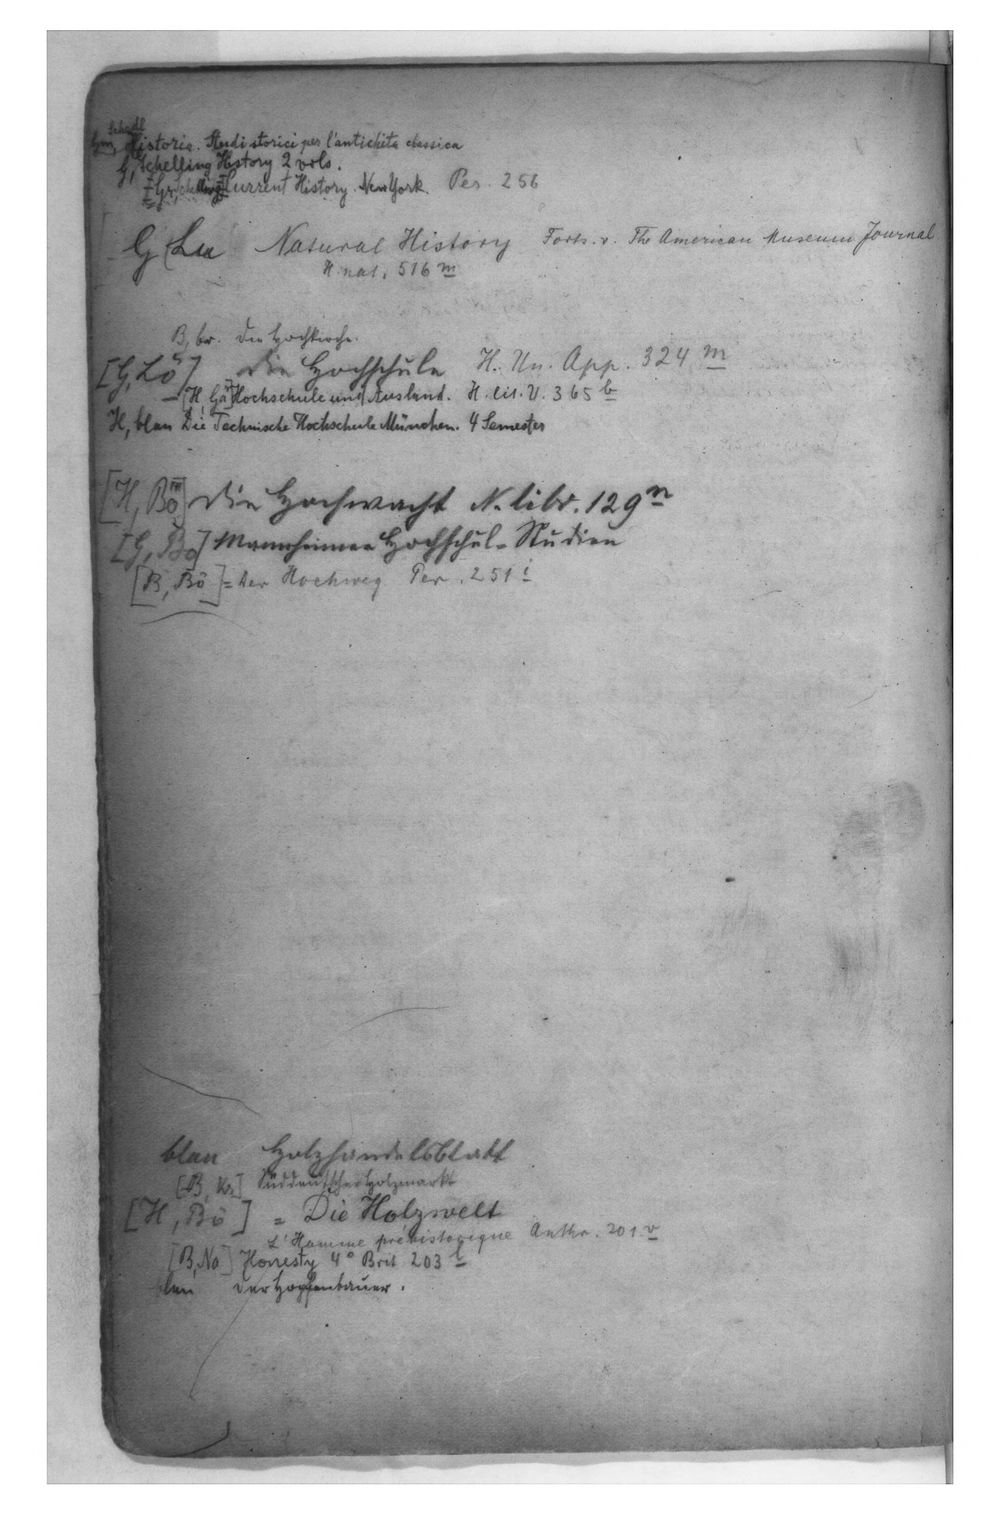 Schedl
Gm, Historia. Studi storici per l'antichita classica
G, Schelling History 2 vols.
[Gr, Schelling] Current History. New York. Per. 256
G Lu Natural History Forts. v. The American Museum Journal
H. nat. 516 m
B, br. Die Hochkirche.
[G, Lö] Die Hochschule H. Un. App. 324 m
[H Gä] Hochschule und Ausland. H. lit. U. 365 b
H, blau Die Technische Hochschule München. 4 Semester
[H, Bö] Die Hochwacht N. libr. 129 n
[G, Bo] Mannheimer Hochschul-Studien
[B, Bö] = Der Hochweg Per. 251 i
blau Holzhandelsblatt
[B, Kr.] Süddeutscher Holzmarkt
[H, Bö] = Die Holzwelt
L'Homme préhistorique Anthr. 201 v
[B, No] Honesty 4° Brit. 203 l
blau Der Hopfenbauer.